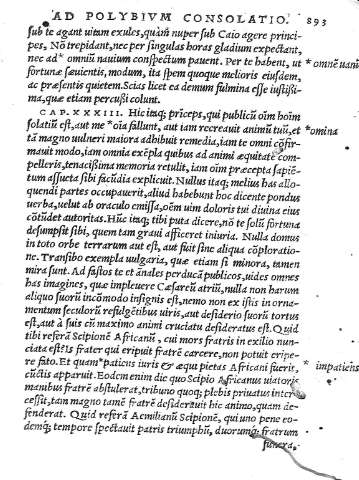 AD POLYBIVM CONSOLATIO. 893
sub te agant uitam exules, quàm nuper sub Caio agere princi-
pes. Nõ trepidant, nec per singulas horas gladium expectant,
nec ad* omniũ nauium conspectum pauent. Per te habent, ut *omnẽ nauiũ
fortunæ sæuientis, modum, ita spem quoque melioris eiusdem,
ac præsentis quietem. Scias licet ea demum fulmina esse iustissi-
ma, quæ etiam percussi colunt.
CAP. XXXIII. Hic itaq; prĩceps, qui publicũ oĩm hoĩm
solatiũ est, aut me *oĩa fallunt, aut iam recreauit animũ tuũ, et *omina
tã magno uulneri maiora adhibuit remedia, iam te omni cõfir-
mauit modo, iam omnia exẽpla quibus ad animi æquitatẽ com-
pelleris, tenacissima memoria retulit, iam oĩm præcepta sapiẽ-
tum assueta sibi facũdia explicuit. Nullus itaq; melius has allo-
quendi partes occupauerit, aliud habebunt hoc dicente pondus
uerba, uelut ab oraculo emissa, oẽm uim doloris tui diuina eius
cõtũdet autoritas. Hũc itaq; tibi puta dicere, nõ te solũ fortuna
desumpsit sibi, quem tam graui afficeret iniuria. Nulla domus
in toto orbe terrarum aut est, aut fuit sine aliqua cõploratio-
ne. Transibo exempla uulgaria, quæ etiam si minora, tamen
mira sunt. Ad fastos te et ãnales perducã publicos, uides omnes
has imagines, quæ impleuere Cæsarẽũ atriũ, nulla non harum
aliquo suorũ incõmodo insignis est, nemo non ex istis in orna-
mentum seculorũ refulgẽtibus uiris, aut desiderio suorũ tortus
est, aut à suis cũ maximo animi cruciatu desideratus est. Quid
tibi referã Scipionẽ Africanũ, cui mors fratris in exilio nun-
ciata est? Is frater qui eripuit fratrẽ carcere, non potuit eripe-
re fato. Et quam*patiens iuris & æqui pietas Africani fuerit, *impatiens
cũctis apparuit. Eodem enim die quo Scipio Africanus uiatoris
manibus fratrẽ abstulerat, tribuno quoq; plebis priuatus inter-
cessit, tam magno tamẽ fratrẽ desiderauit hic animo, quam de-
fenderat. Quid referã Aemilianũ Scipionẽ, qui uno pene eo-
demq; tempore spectauit patris triumphũ, duorumq; fratrum
funera,